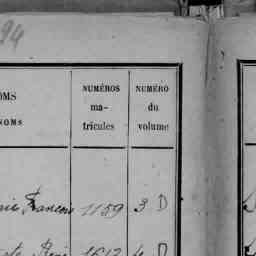 94
OMS NUMÉROS NUMÉRO
ma- du
NOMS tricules volume
François 1159 3 D
1612 4 D